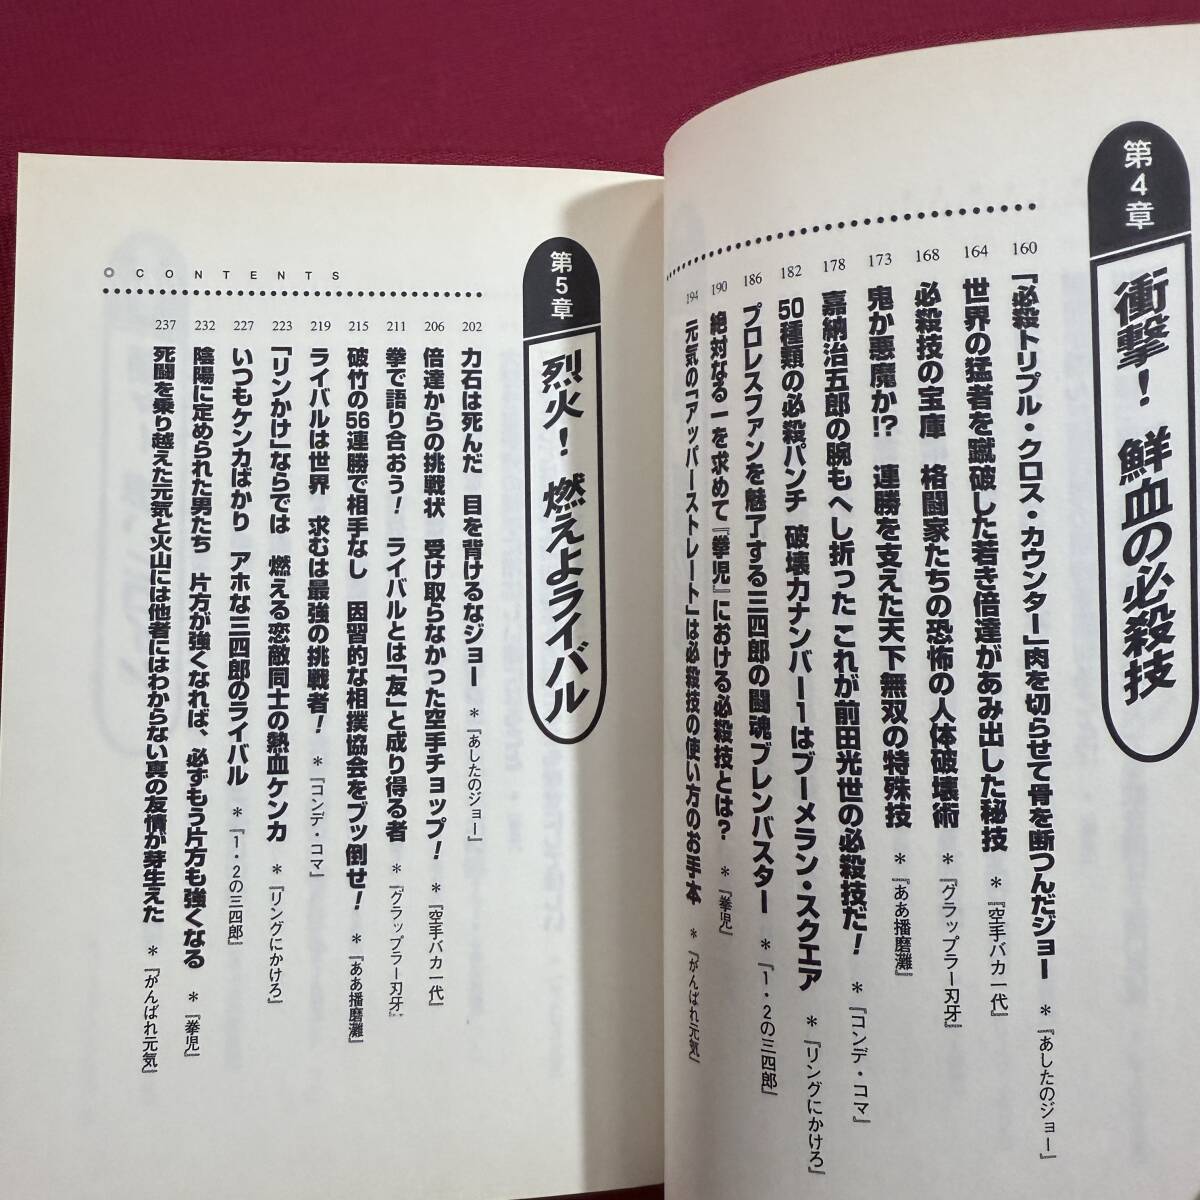 第4章
衝撃! 鮮血の必殺技
160 「必殺トリプル・クロス・カウンター」肉を切らせて骨を断つんだジョー *『あしたのジョー』
164 世界の猛者を蹴破した若き倍達があみ出した秘技 *『空手バカ一代』
168 必殺技の宝庫 格闘家たちの恐怖の人体破壊術 *『グラップラー刃牙』
173 鬼か悪魔か!? 連勝を支えた天下無双の特殊技 *『ああ播磨灘』
178 嘉納治五郎の腕もへし折った これが前田光世の必殺技だ! *『コンデ・コマ』
182 50種類の必殺パンチ 破壊力ナンバー1はブーメラン・スクエア *『リングにかけろ』
186 プロレスファンを魅了する三四郎の闘魂ブレンバスター *『1・2の三四郎』
190 絶対なる一を求めて『拳児』における必殺技とは? *『拳児』
194 元気の「アッパーストレート」は必殺技の使い方のお手本 *『がんばれ元気』
CONTENTS
第5章
烈火! 燃えよライバル
202 力石は死んだ 目を背けるなジョー *『あしたのジョー』
206 倍達からの挑戦状 受け取らなかった空手チョップ! *『空手バカ一代』
211 拳で語り合おう! ライバルとは「友」と成り得る者 *『グラップラー刃牙』
215 破竹の56連勝で相手なし 因習的な相撲協会をブッ倒せ! *『ああ播磨灘』
219 ライバルは世界 求むは最強の挑戦者! *『コンデ・コマ』
223 「リンかけ」ならでは 燃える恋敵同士の熱血ケンカ *『リングにかけろ』
227 いつもケンカばかり アホな三四郎のライバル *『1・2の三四郎』
232 陰陽に定められた男たち 片方が強くなれば、必ずもう片方も強くなる *『拳児』
237 死闘を乗り越えた元気と火山には他者にはわからない真の友情が芽生えた *『がんばれ元気』